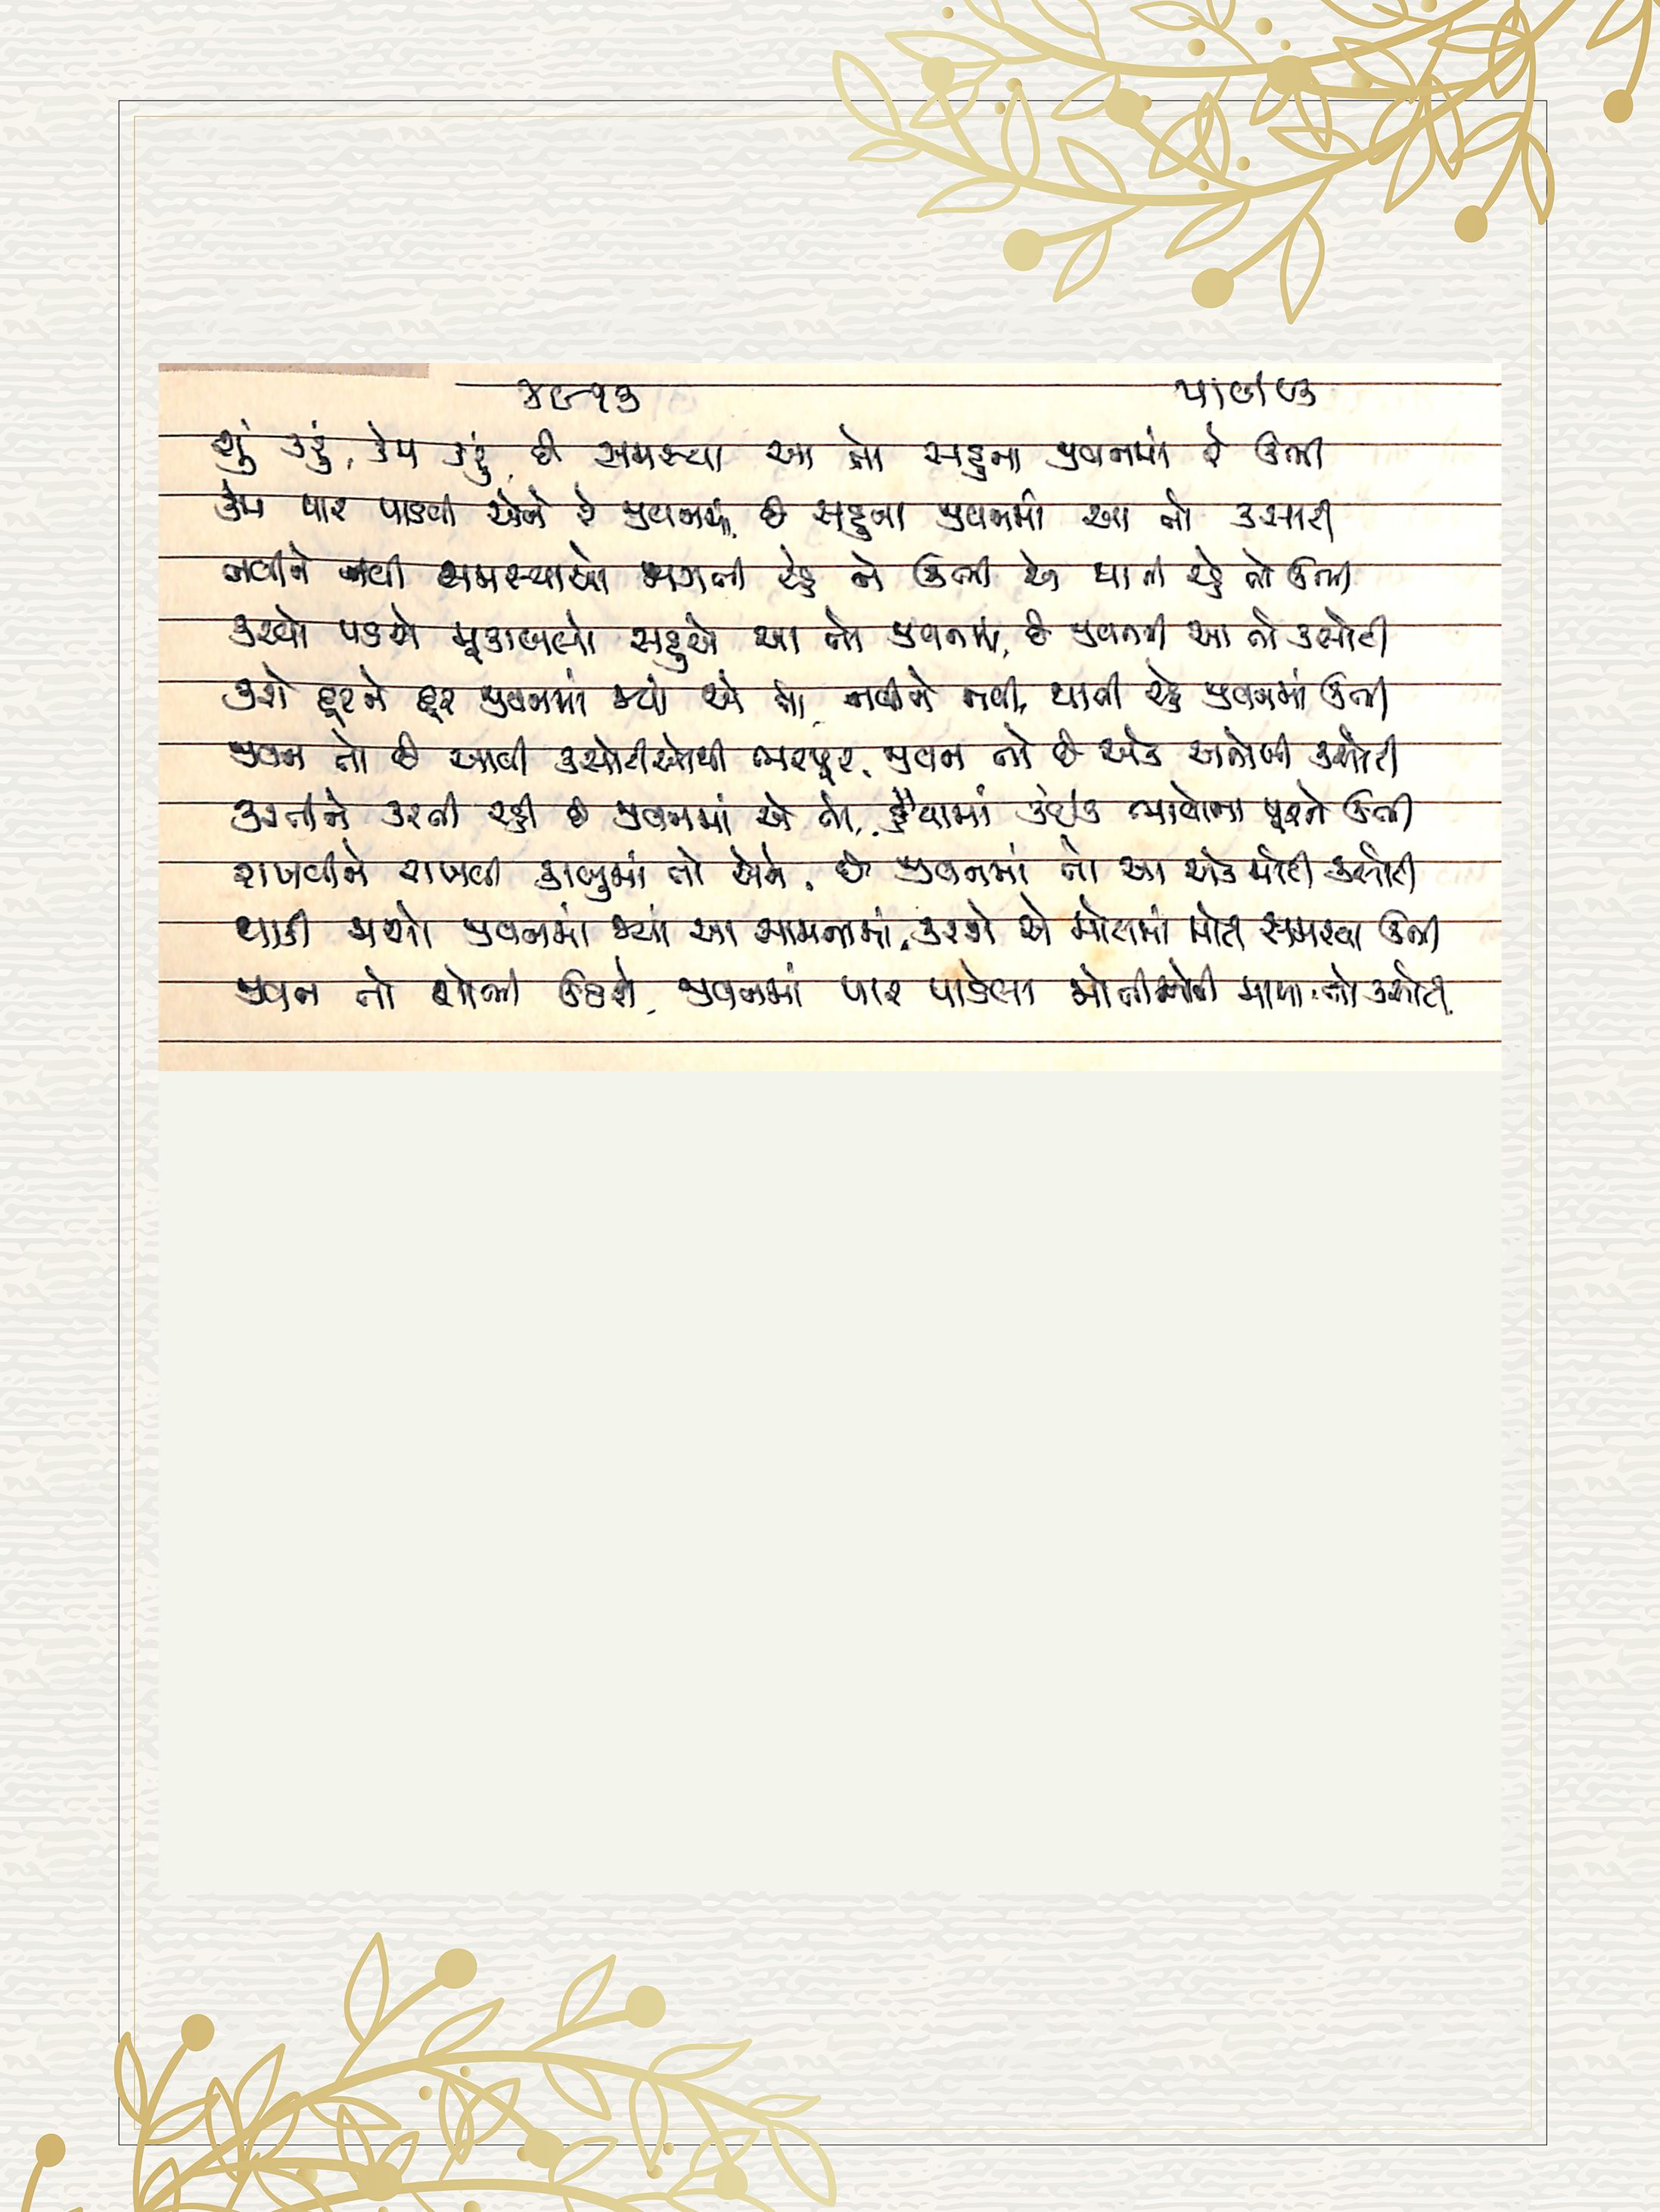 ૪૯૧૩ ૫।૭।૯૩
શું કરું, કેમ કરું, છે સમસ્યા આ તો સહુના જીવનમાં રે ઊભી
કેમ પાર પાડવી એને રે જીવનમાં, છે સહુના જીવનમાં આ તો કસોટી
નવીને નવી સમસ્યાઓ જાગતી રહે ને ઊભી એ થાતી રહે તો ઊભી
કરવો પડશે મૂકાબલો સહુએ આ તો જીવનમાં, છે જીવનની આ તો કસોટી
કરશો દૂરને દૂર જીવનમાં જ્યાં એ તો, નવીને નવી, થાતી રહે જીવનમાં ઊભી
જીવન તો છે આવી કસોટીઓથી ભરપૂર, જીવન તો છે એક અનોખી કસોટી
કરતીને કરતી રહી છે જીવનમાં એ તો, હૈયામાં કંઈક ભાવોના પૂરને ઊભી
રાખવીને રાખવી કાબુમાં તો એને, છે જીવનમાં તો આ એક મોટી કસોટી
થાકી ગયો જીવનમાં જ્યાં આ સામનામાં, કરશે એ મોતમાં મોટી સમસ્યા ઊભી
જીવન તો શોભી ઊઠશે, જીવનમાં પાર પાડેલા મોતીઓની માળા તો કસોટી.